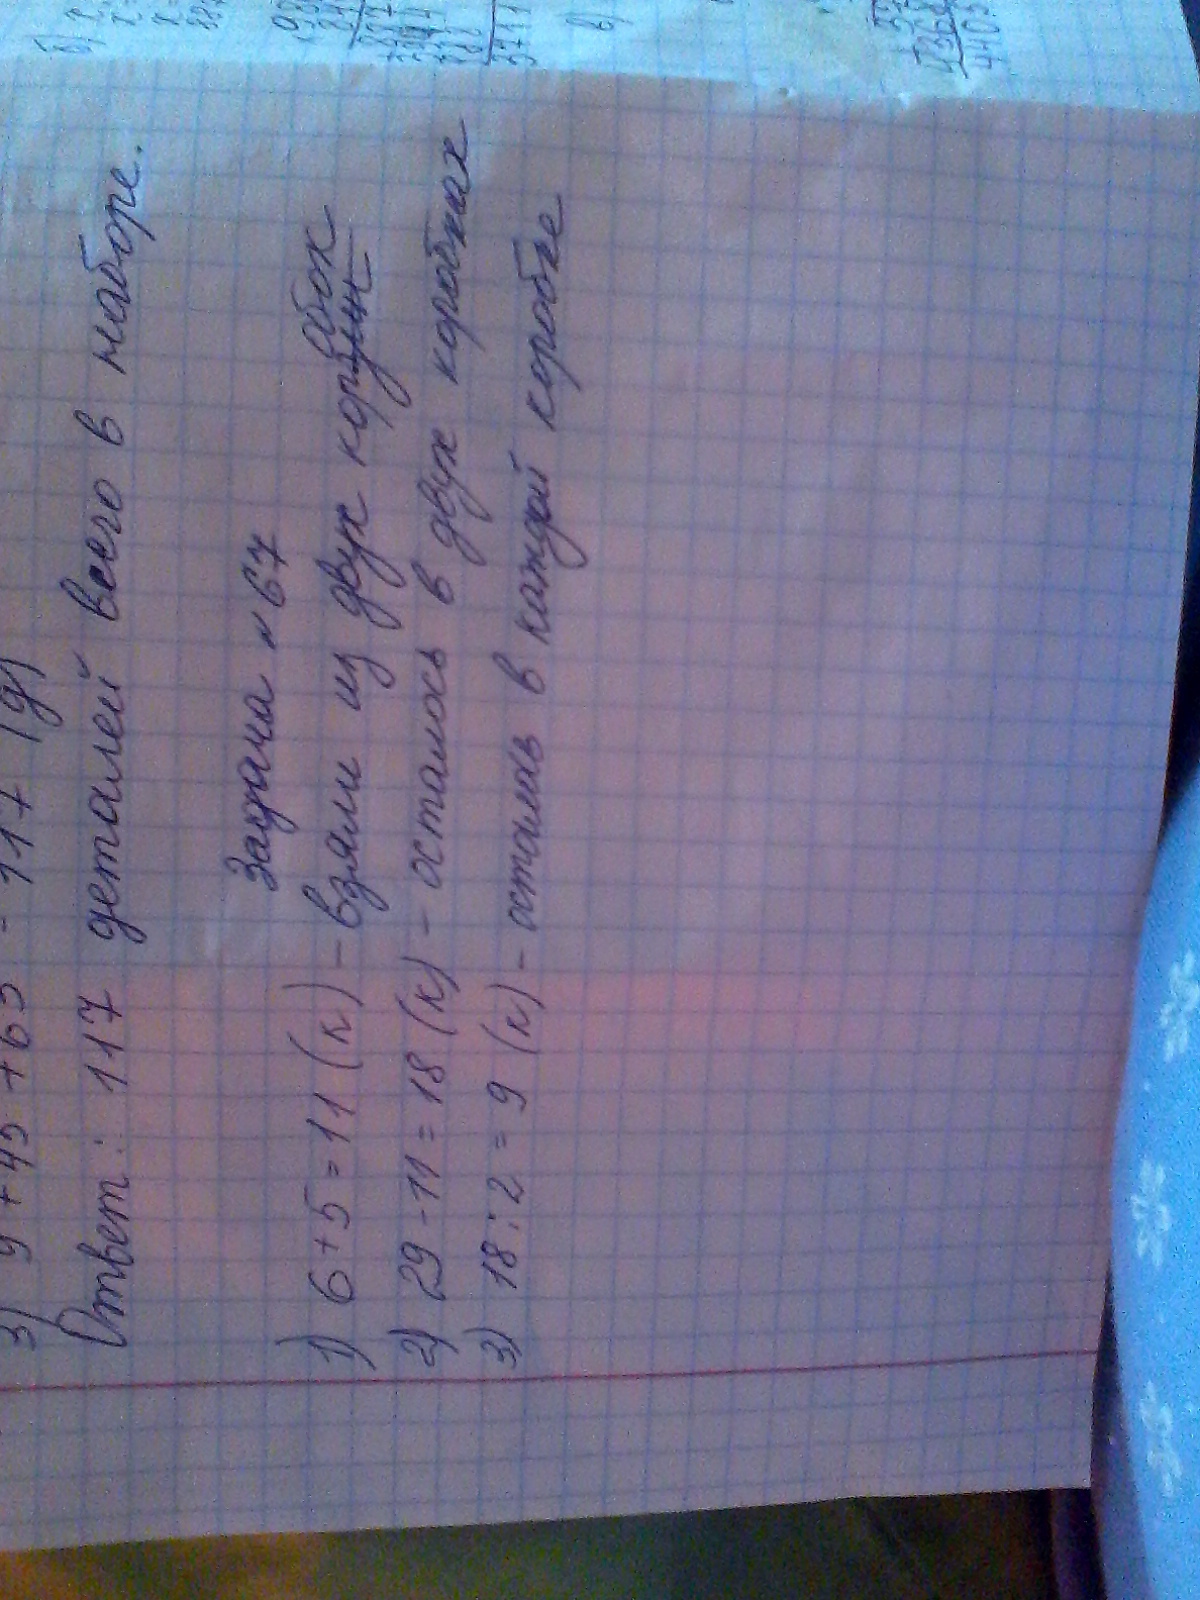 3) 9 + 45 + 63 = 117 (д)
Ответ: 117 деталей всего в наборе.
Задача № 67
1) 6 + 5 = 11 (к) - взяли из двух коробок
2) 29 - 11 = 18 (к) - осталось в двух коробках
3) 18 : 2 = 9 (к) - осталось в каждой коробке